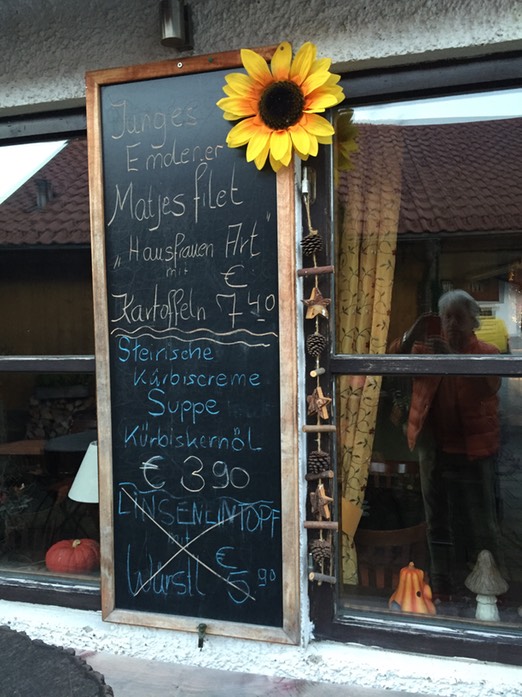 Junges
Emdener
Matjesfilet
"Hausfrauen Art"
mit €
Kartoffeln 7.40
Steirische
Kürbiscreme
Suppe
Kürbiskernöl
€ 3.90
LINSENEINTOPF
mit
Würstl € 5.90